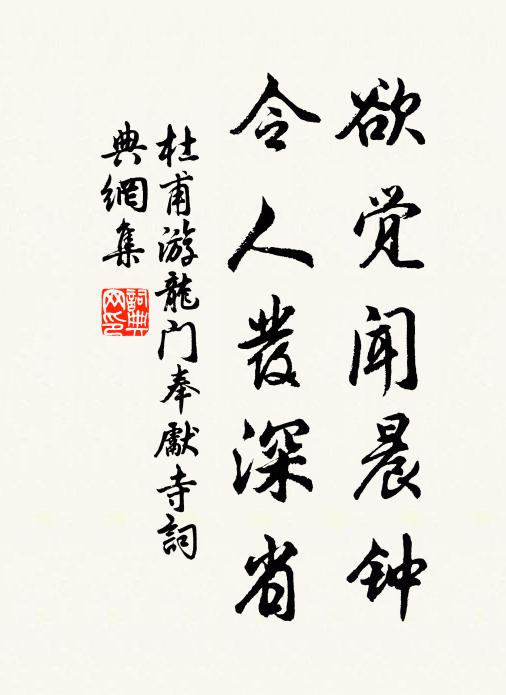 欲觉闻晨钟
令人发深省
杜甫游龍门奉獻寺詞
典網集
詞典网印